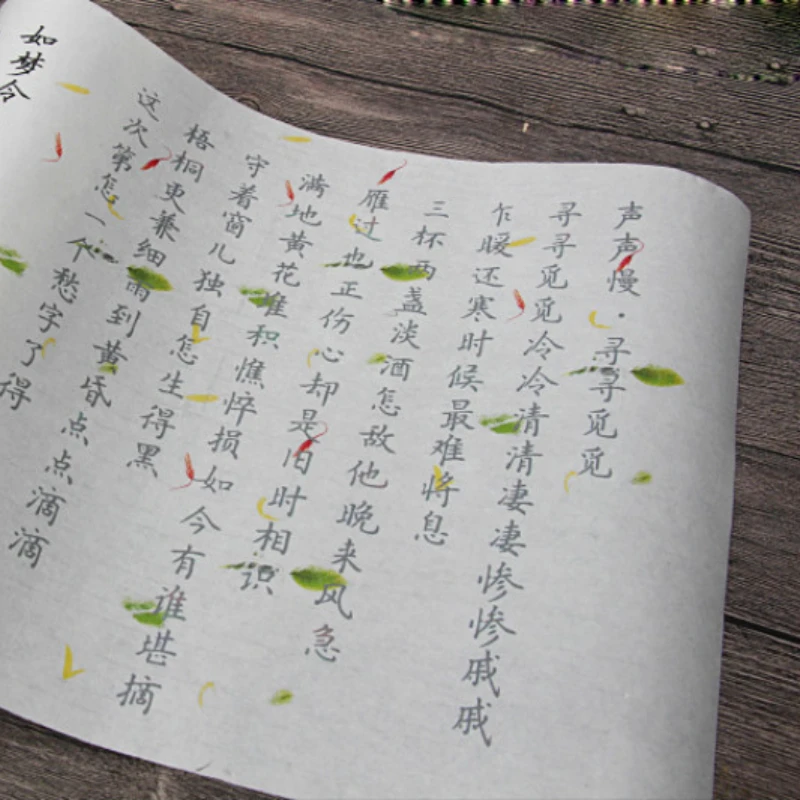 声声慢·寻寻觅觅
寻寻觅觅冷冷清清凄凄惨惨戚戚
乍暖还寒时候最难将息
三杯两盏淡酒怎敌他晚来风急
雁过也正伤心却是旧时相识
满地黄花堆积憔悴损如今有谁堪摘
守着窗儿独自怎生得黑
梧桐更兼细雨到黄昏点点滴滴
这次第怎一个愁字了得
如梦令